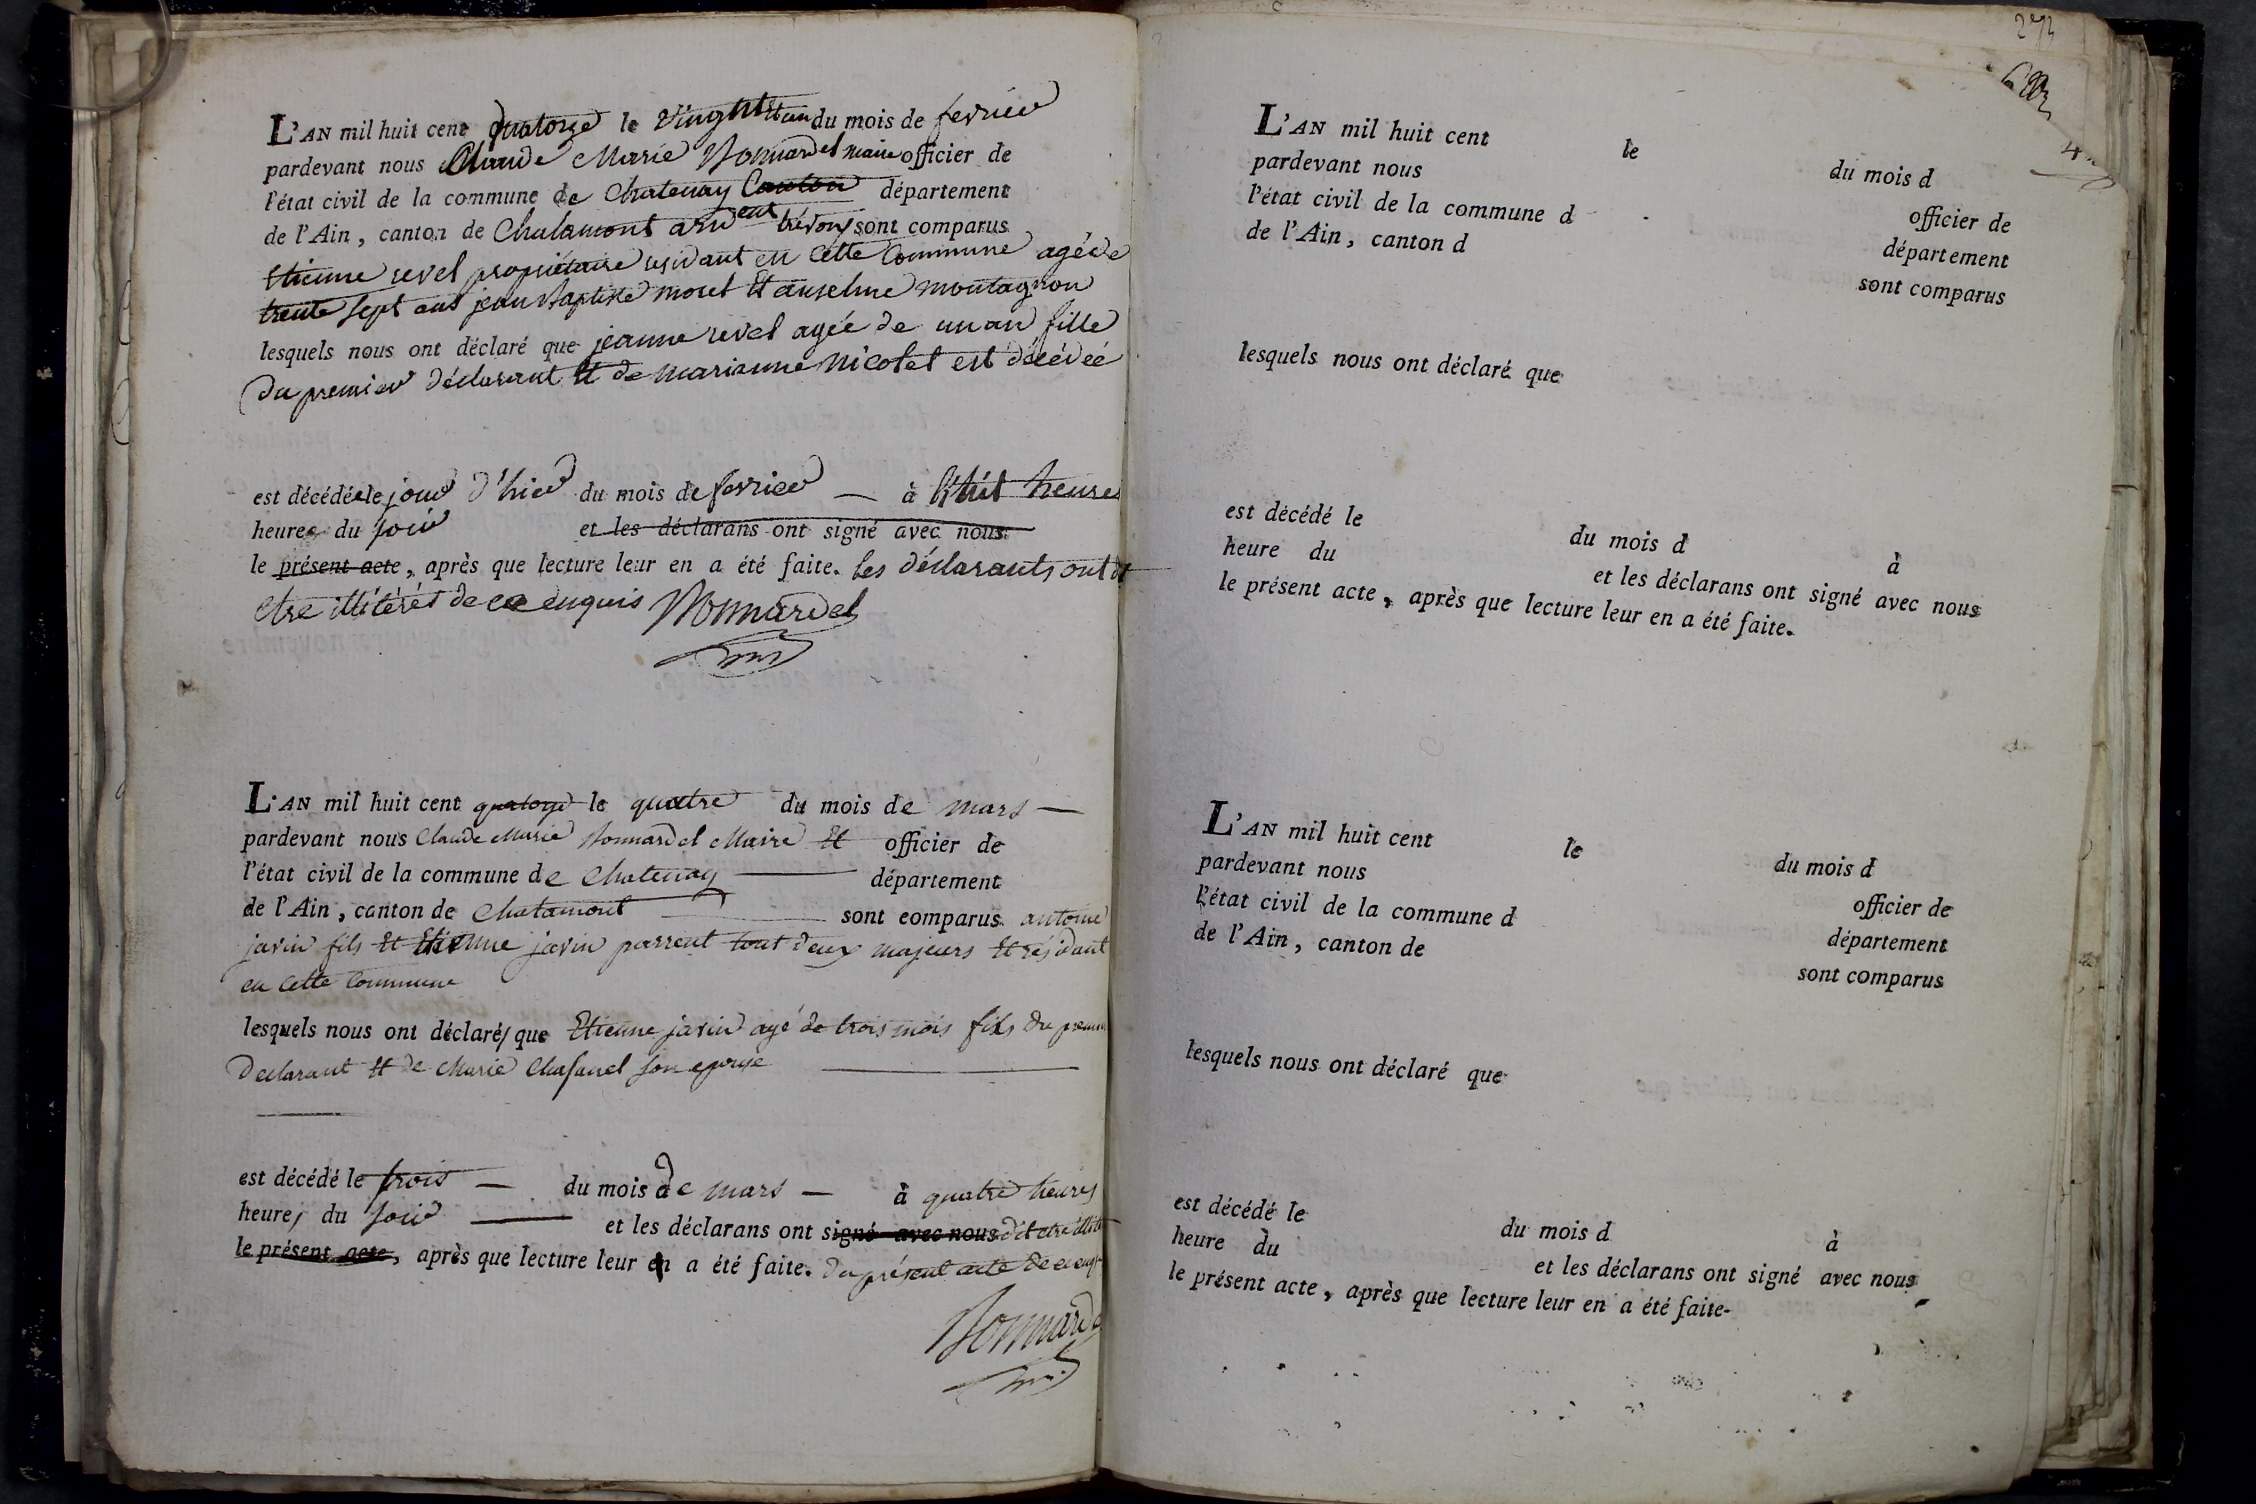 L'AN mil huit cent quatorze le vingt du mois de fevrier
pardevant nous Claude Marie Bonnardel maire officier de
l'état civil de la commune de Chatenay Canton département
de l'Ain, canton de Chalamont arrd ent trévoux sont comparus
Etienne revel propriétaire residant en cette Commune agé de
trente sept ans jean Baptiste moret Et anselme montagnon
lesquels nous ont déclaré que jeanne revel agée de un an fille
du premier déclarant Et de marianne nicolet est décédée
est décédée le jour d'hier du mois de fevrier — à huit heures
heures du soir et les déclarans ont signé avec nous
le présent acte, après que lecture leur en a été faite. les déclarants ont dt
etre illitérés de ce enquis Bonnardel
L'AN mil huit cent quatorze le quatre du mois de mars —
pardevant nous Claude Marie Bonnardel Maire Et officier de
l'état civil de la commune de Chatenay département
de l'Ain, canton de Chalamont sont comparus antoine
javin fils Et Etienne javin parrent tout deux majeurs Et résidant
en cette Commune
lesquels nous ont déclarés que Etienne javin agé de trois mois fils du premier
declarant Et de Marie Chasanel son epouse
est décédé le trois — du mois de mars — à quatre heures
heures du soir et les déclarans ont signé avec nous dit etre
le présent acte, après que lecture leur en a été faite. du présent acte de ce enq
Bonnarde
L'AN mil huit cent le du mois d
pardevant nous officier de
l'état civil de la commune d département
de l'Ain, canton d sont comparus
lesquels nous ont déclaré que
est décédé le du mois d à
heure du et les déclarans ont signé avec nous
le présent acte, après que lecture leur en a été faite.
L'AN mil huit cent le du mois d
pardevant nous officier de
l'état civil de la commune d département
de l'Ain, canton de sont comparus
lesquels nous ont déclaré que
est décédé le du mois d à
heure du et les déclarans ont signé avec nous
le présent acte, après que lecture leur en a été faite.